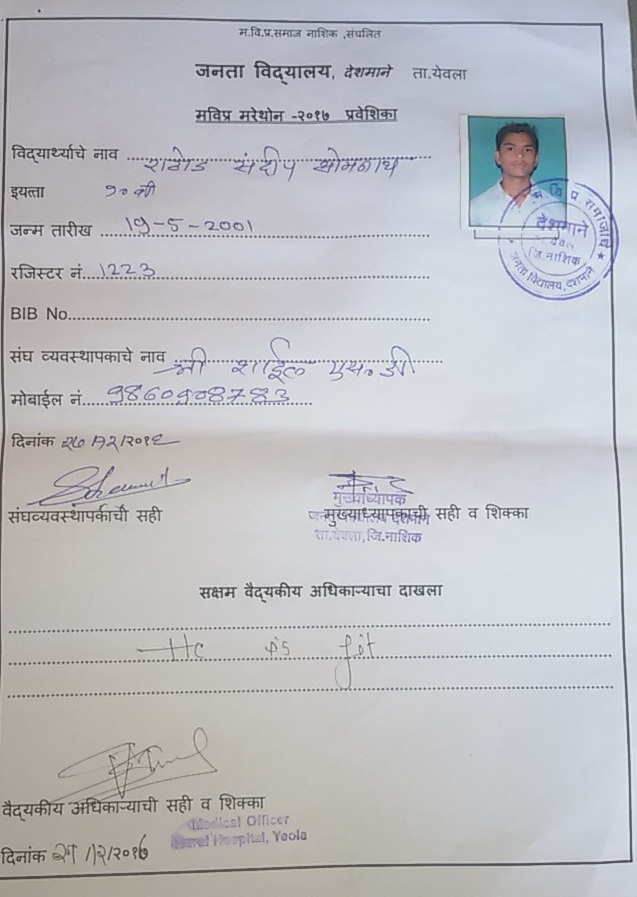 म.वि.प्र.समाज नाशिक ,संचलित
जनता विद्यालय, देशमाने ता.येवला
मविप्र मरेथोन -२०१७ प्रवेशिका
विद्यार्थ्याचे नाव राठोड संदीप सोमनाथ
इयत्ता १० वी
जन्म तारीख 19-5-2001
रजिस्टर नं. 1223
BIB No.
संघ व्यवस्थापकाचे नाव श्री
मोबाईल नं.
दिनांक
संघव्यवस्थापर्काची सही
मुख्याध्यापकाची सही व शिक्का
मुख्याध्यापक
ता.येवला,जि.नाशिक
देशमाने
जि.नाशिक
जनता विद्यालय, देशमाने
सक्षम वैद्यकीय अधिकाऱ्याचा दाखला
He is fit
वैद्यकीय अधिकाऱ्याची सही व शिक्का
Medical Officer
Hospital, Yeola
दिनांक